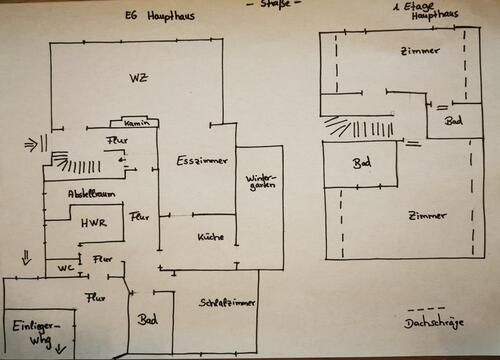 - Straße -
EG Haupthaus
1 Etage
Haupthaus
WZ
Zimmer
Kamin
Flur
Bad
Esszimmer
Winter-
garten
Bad
Abstellraum
HWR
Flur
Küche
Zimmer
WC
Flur
Flur
Schlafzimmer
Einlieger-
Whg
Bad
Dachschräge